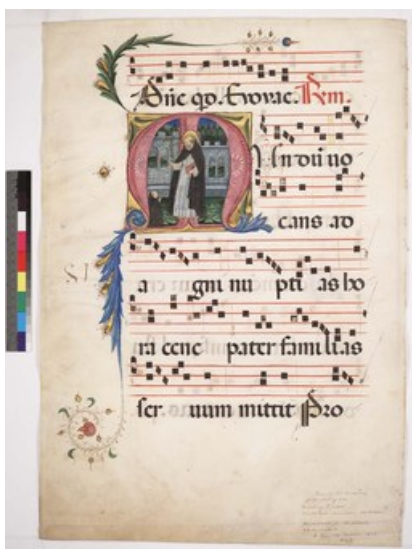 Dñe qd. Evovae.
MUn dũ uo
cans ad
a gni nu pti as ho
ra cene pater famili as
ser uum mittit Pro